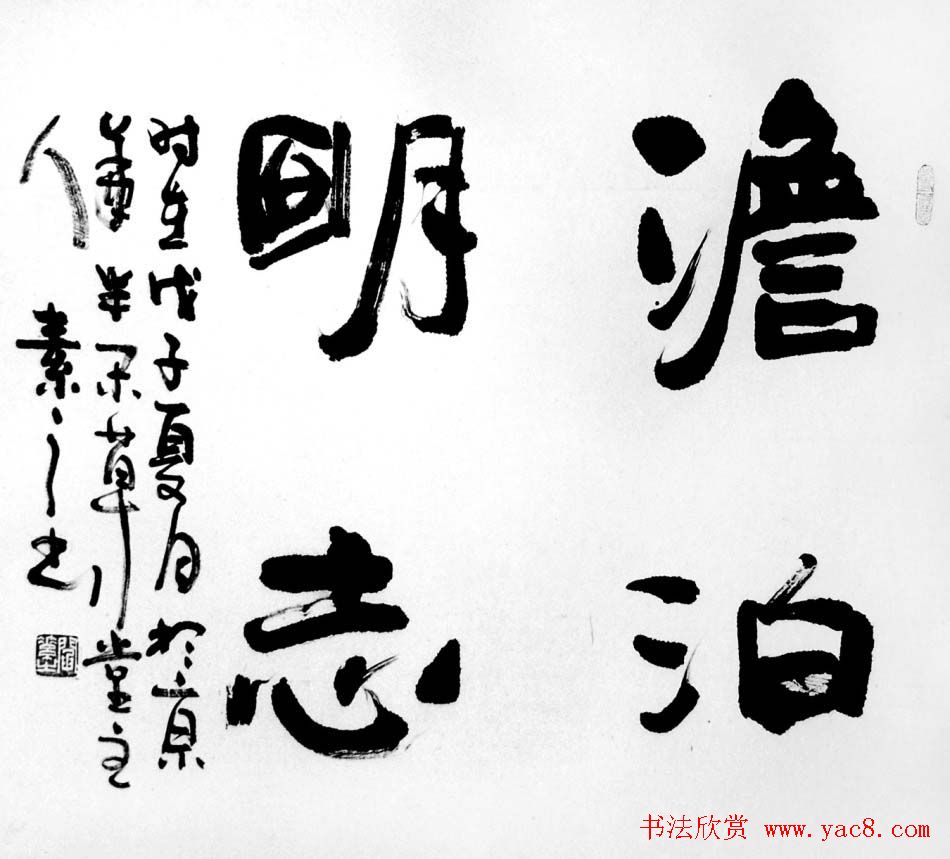 澹泊
明志
时在戊子夏月於京
华半闲草堂主
人 素之书
书法欣赏 www.yac8.com